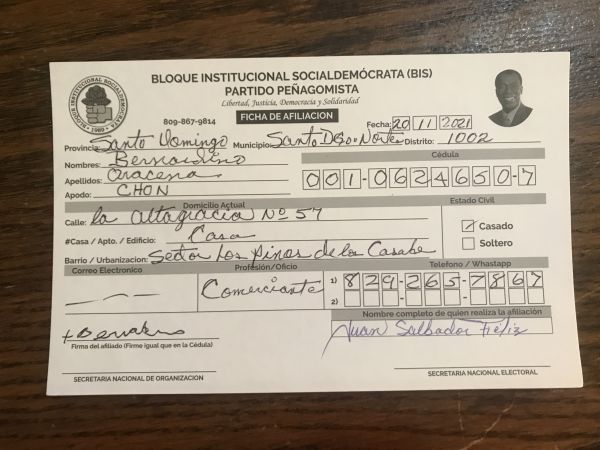 BLOQUE INSTITUCIONAL SOCIALDEMÓCRATA (BIS)
PARTIDO PEÑAGOMISTA
Libertad, Justicia, Democracia y Solidaridad
BLOQUE INSTITUCIONAL SOCIALDEMOCRATA
1989
809-867-9814 FICHA DE AFILIACION Fecha: 20 11 2021
Provincia: Santo Domingo Municipio: Santo Dgo. Norte Distrito: 1002
Nombres: Bernardino Cédula
Apellidos: Aracena 001-0624650-7
Apodo: CHON
Domicilio Actual Estado Civil
Calle: la altagracia Nº 57 Casado
#Casa / Apto. / Edificio: Casa Soltero
Barrio / Urbanizacion: Sector Los Pinos de la Casabe
Correo Electronico Profesión/Oficio Telefono / Whastapp
Comerciante 1) 829-265-7867
2)
Nombre completo de quien realiza la afiliación
Juan Salbador Feliz
Firma del afiliado (Firme igual que en la Cédula)
SECRETARIA NACIONAL DE ORGANIZACION SECRETARIA NACIONAL ELECTORAL